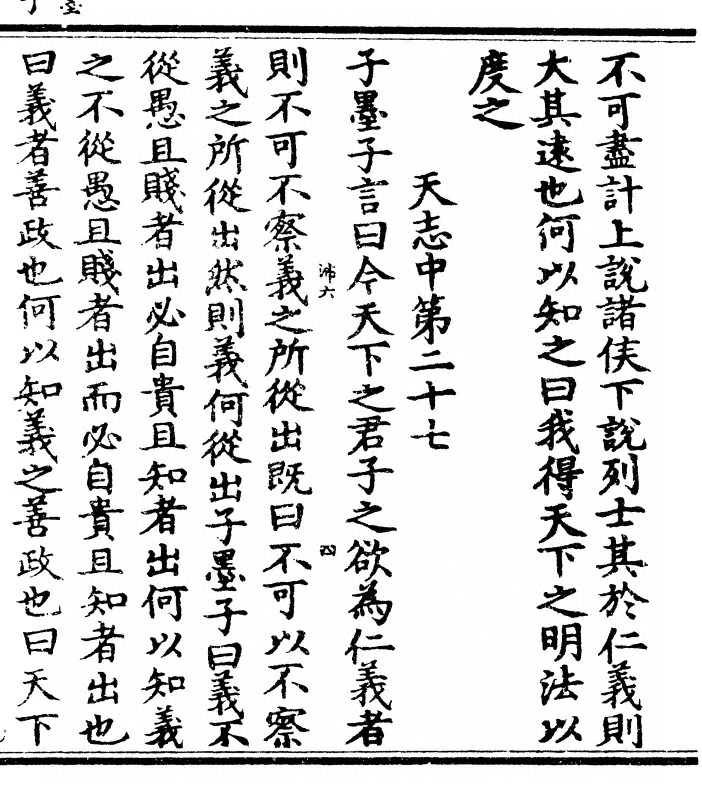 不可盡計上說諸侯下說列士其於仁義則
大其遠也何以知之曰我得天下之明法以
度之
天志中第二十七
子墨子言曰今天下之君子之欲為仁義者
則不可不察義之所從出既曰不可以不察
義之所從出然則義何從出子墨子曰義不
從愚且賤者出必自貴且知者出何以知義
之不從愚且賤者出而必自貴且知者出也
曰義者善政也何以知義之善政也曰天下